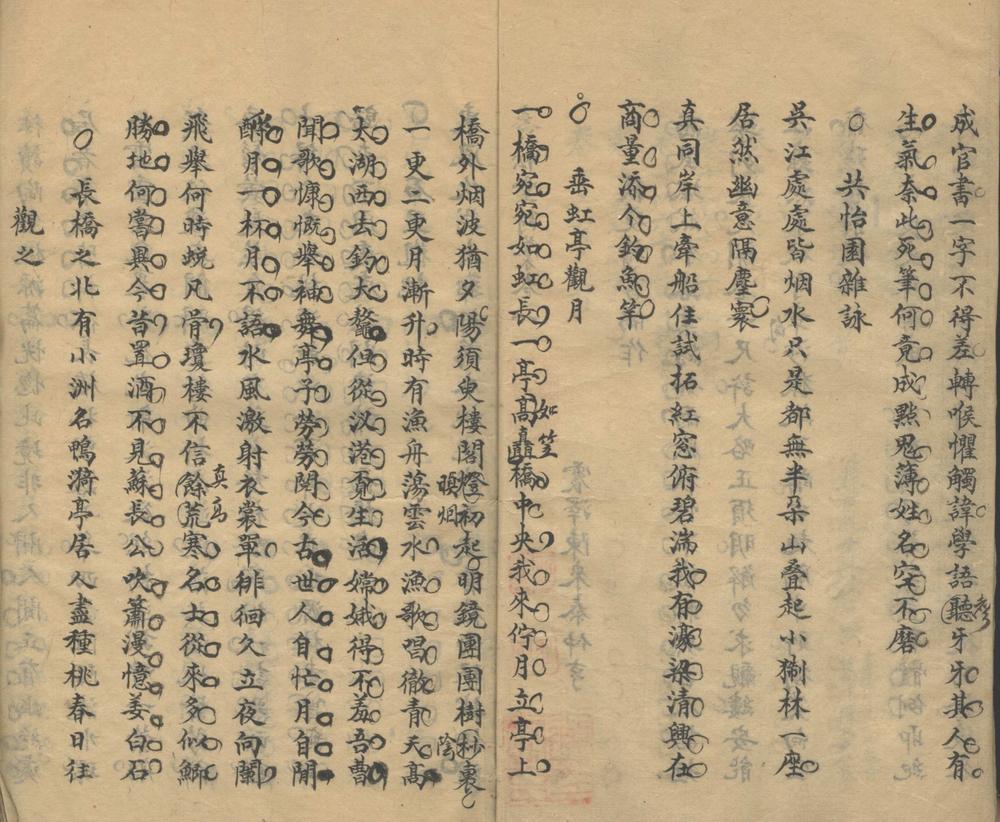 成官書一字不得差轉喉懼觸諱學語聽牙牙其人有
生氣奈此死筆何竟成點鬼薄姓名定不磨
共怡園雜詠
吳江處處皆烟水只是都無半朵山叠起小獅林一座
居然幽意隔塵寰
真同岸上牽船住試拓紅窓俯碧湍我有濠梁清興在
商量添个釣魚竿
垂虹亭觀月
一橋宛宛如虹長一亭高矗橋中央我來佇月立亭上
如笠
橋外烟波猶夕陽須臾樓閣燈初起明鏡團團樹杪裏
暝烟
陰
一更二更月漸升時有漁舟蕩雲水漁歌唱徹青天高
太湖西去釣大鰲但從汊港覔生活嫦娥得不羞吾曹
聞歌慷慨舉袖舞亭子勞勞閱今古世人自忙月自閒
酹月一杯月不語水風激射衣裳單徘徊久立夜向闌
飛舉何時蛻凡骨瓊樓不信餘荒寒名士從來多似鯽
真高
勝地何嘗異今昔置酒不見蘇長公吹簫漫憶姜白石
長橋之北有小洲名鴨漪亭居人盡種桃春日往
觀之